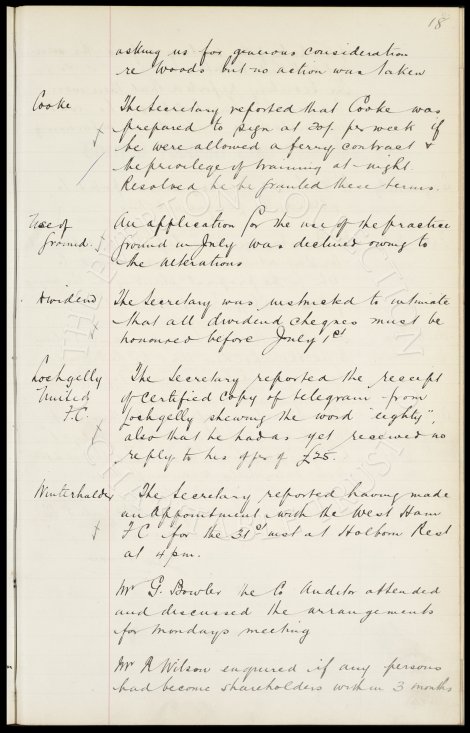 18
asking us for generous consideration
re Woods but no action was taken
Cooke
The Secretary reported that Cooke was
prepared to sign at 30/- per week if
he were allowed a ferry contract &
the privilege of training at night.
Resolved he be granted these terms.
Use of
Ground.
An application for the use of the practice
ground in July was declined owing to
the alterations
Dividend
The Secretary was instructed to intimate
that all dividend cheques must be
honoured before July 1st
Lochgelly
United
F.C.
The Secretary reported the receipt
of certified copy of telegram from
Lochgelly shewing the word "eighty",
also that he had as yet received no
reply to his offer of £25.
Winterhalder
The Secretary reported having made
an Appointment with the West Ham
F C for the 31st inst at Holborn Rest
at 4 pm.
Mr G. Bowler the Co Auditor attended
and discussed the arrangements
for Mondays meeting
Mr R Wilson enquired if any persons
had become shareholders within 3 months